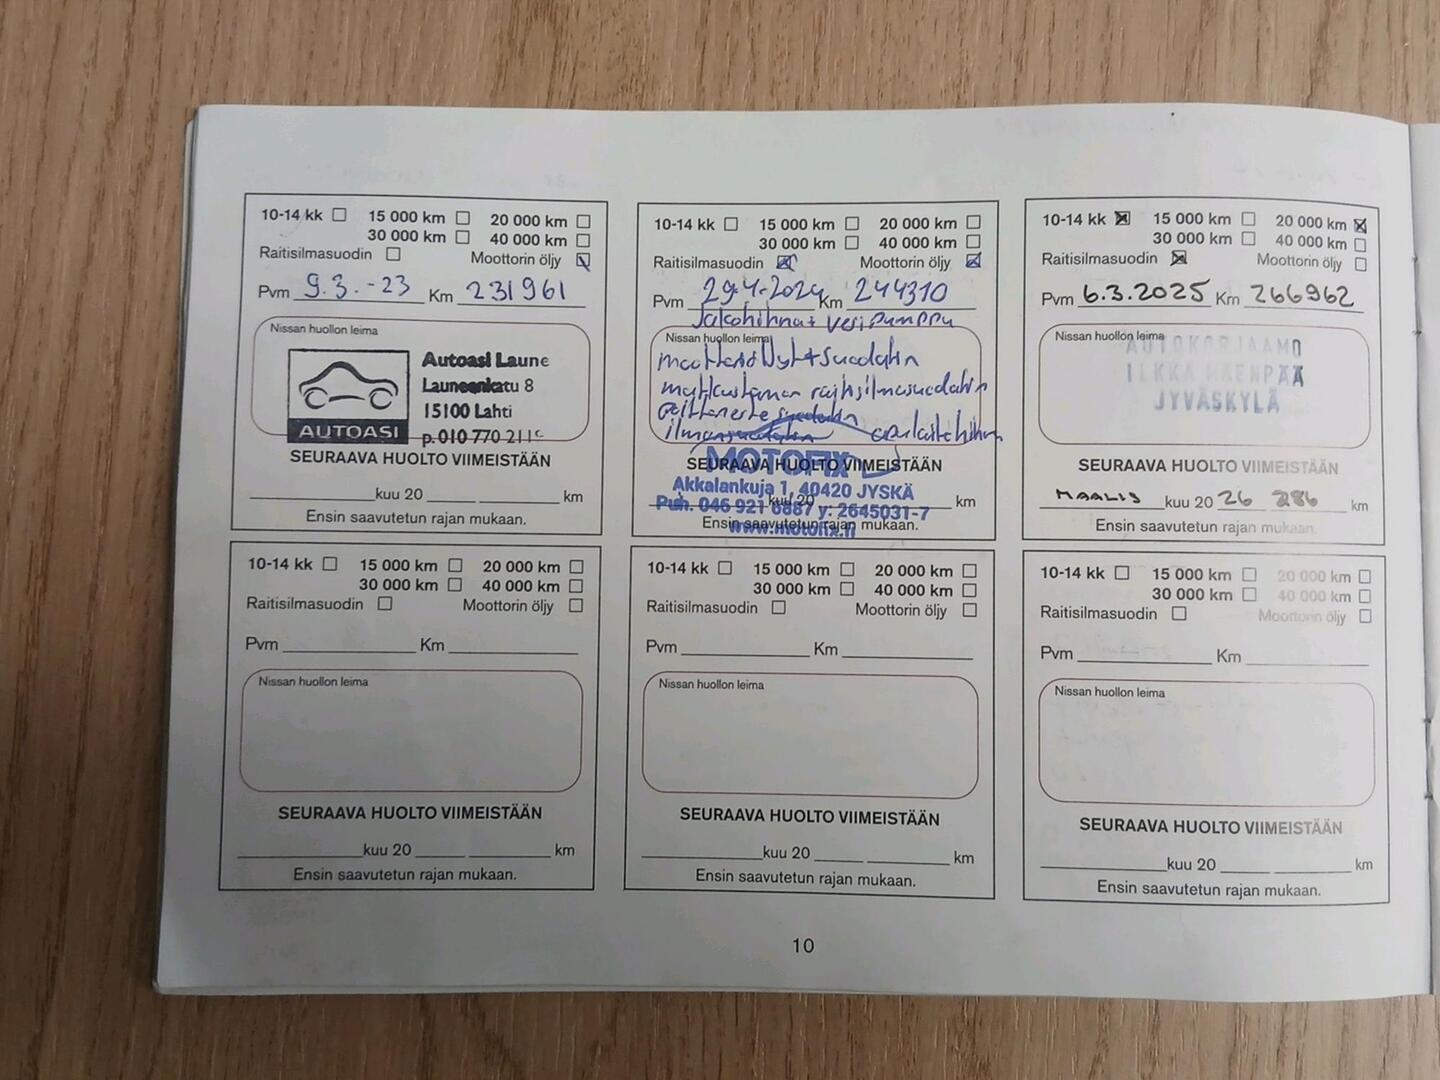 10-14 kk 15 000 km 20 000 km
30 000 km 40 000 km
Raitisilmasuodin Moottorin öljy
Pvm 9.3.-23 Km 231961
Nissan huollon leima
Autoasi Laune
Launeenkatu 8
15100 Lahti
AUTOASI p. 010 770 211
SEURAAVA HUOLTO VIIMEISTÄÄN
kuu 20 km
Ensin saavutetun rajan mukaan.
10-14 kk 15 000 km 20 000 km
30 000 km 40 000 km
Raitisilmasuodin Moottorin öljy
Pvm 29.4.2024 Km 244310
Jakohihna+ vesipumppu
Nissan huollon leima
moottoriöljyt+suodatin
matkustamon raitisilmasuodatin
polttoneste suodatin
ilmansuodatin apulaitehihna
MOTOFIX
SEURAAVA HUOLTO VIIMEISTÄÄN
Akkalankuja 1, 40420 JYSKÄ
kuu 20 km
Puh. 046 921 6887 y: 2645031-7
Ensin saavutetun rajan mukaan.
www.motofix.fi
10-14 kk 15 000 km 20 000 km
30 000 km 40 000 km
Raitisilmasuodin Moottorin öljy
Pvm 6.3.2025 Km 266962
Nissan huollon leima
AUTOKORJAAMO
ILKKA MÄENPÄÄ
JYVÄSKYLÄ
SEURAAVA HUOLTO VIIMEISTÄÄN
MAALIS kuu 20 26 286 km
Ensin saavutetun rajan mukaan.
10-14 kk 15 000 km 20 000 km
30 000 km 40 000 km
Raitisilmasuodin Moottorin öljy
Pvm Km
Nissan huollon leima
SEURAAVA HUOLTO VIIMEISTÄÄN
kuu 20 km
Ensin saavutetun rajan mukaan.
10-14 kk 15 000 km 20 000 km
30 000 km 40 000 km
Raitisilmasuodin Moottorin öljy
Pvm Km
Nissan huollon leima
SEURAAVA HUOLTO VIIMEISTÄÄN
kuu 20 km
Ensin saavutetun rajan mukaan.
10-14 kk 15 000 km 20 000 km
30 000 km 40 000 km
Raitisilmasuodin Moottorin öljy
Pvm Km
Nissan huollon leima
SEURAAVA HUOLTO VIIMEISTÄÄN
kuu 20 km
Ensin saavutetun rajan mukaan.
10